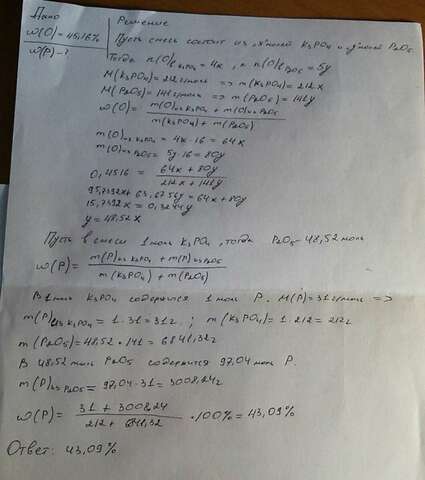 Дано
ω(O) = 45,16%
ω(P) - ?
Решение
Пусть смесь состоит из x молей K₃PO₄ и y молей P₂O₅.
Тогда n(O) в K₃PO₄ = 4x, а n(O) в P₂O₅ = 5y
M(K₃PO₄) = 212 г/моль => m(K₃PO₄) = 212x
M(P₂O₅) = 141 г/моль => m(P₂O₅) = 141y
ω(O) = m(O) из K₃PO₄ + m(O) из P₂O₅ / m(K₃PO₄) + m(P₂O₅)
m(O) из K₃PO₄ = 4x · 16 = 64x
m(O) из P₂O₅ = 5y · 16 = 80y
0,4516 = 64x + 80y / 212x + 141y
95,7392x + 63,6756y = 64x + 80y
15,7392x = 0,3244y
y = 48,52x
Пусть в смеси 1 моль K₃PO₄, тогда P₂O₅ - 48,52 моль
ω(P) = m(P) из K₃PO₄ + m(P) из P₂O₅ / m(K₃PO₄) + m(P₂O₅)
В 1 моль K₃PO₄ содержится 1 моль P. M(P) = 31 г/моль =>
m(P) из K₃PO₄ = 1 · 31 = 31г. ; m(K₃PO₄) = 1 · 212 = 212г
m(P₂O₅) = 48,52 · 141 = 6841,32г
В 48,52 моль P₂O₅ содержится 97,04 моль P.
m(P) из P₂O₅ = 97,04 · 31 = 3008,24г
ω(P) = 31 + 3008,24 / 212 + 6841,32 · 100% = 43,09%
Ответ: 43,09%